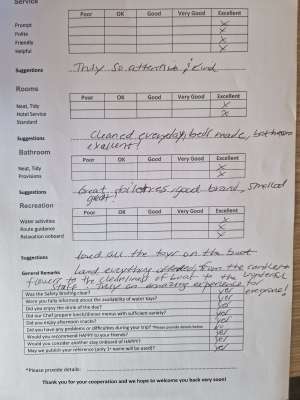 Service
Poor OK Good Very Good Excellent
Prompt X
Polite X
Friendly X
Helpful X
Suggestions Truly so attentive & kind
Rooms
Poor OK Good Very Good Excellent
Neat, Tidy X
Hotel Service X
Standard
Suggestions Cleaned everyday, bed made, bathroom
exellent!
Bathroom
Poor OK Good Very Good Excellent
Neat, Tidy X
Provisions X
Suggestions Great toiletries, good brand, smelled
great!
Recreation
Poor OK Good Very Good Excellent
Water activities X
Route guidance X
Relaxation onboard X
Suggestions loved all the toys on the boat
General Remarks Loved everything offered, from the
flowers, the cleanliness of boat, the wonderful
staff. Truly an amazing experience for
everyone!
Was the Safety Briefing clear? yes
Were you fully informed about the availability of water toys? yes
Did you enjoy the drink of the day? yes
Did our Chef prepare lunch/dinner menus with sufficient variety? yes
Did you enjoy afternoon snacks? yes
Did you have any problems or difficulties during your trip? *Please provide details below no
Would you recommend HAPPY to your friends? yes
Would you consider another stay onboard of HAPPY? yes
May we publish your reference (only 1st name will be used)? yes
*Please provide details:
Thank you for your cooperation and we hope to welcome you back very soon!